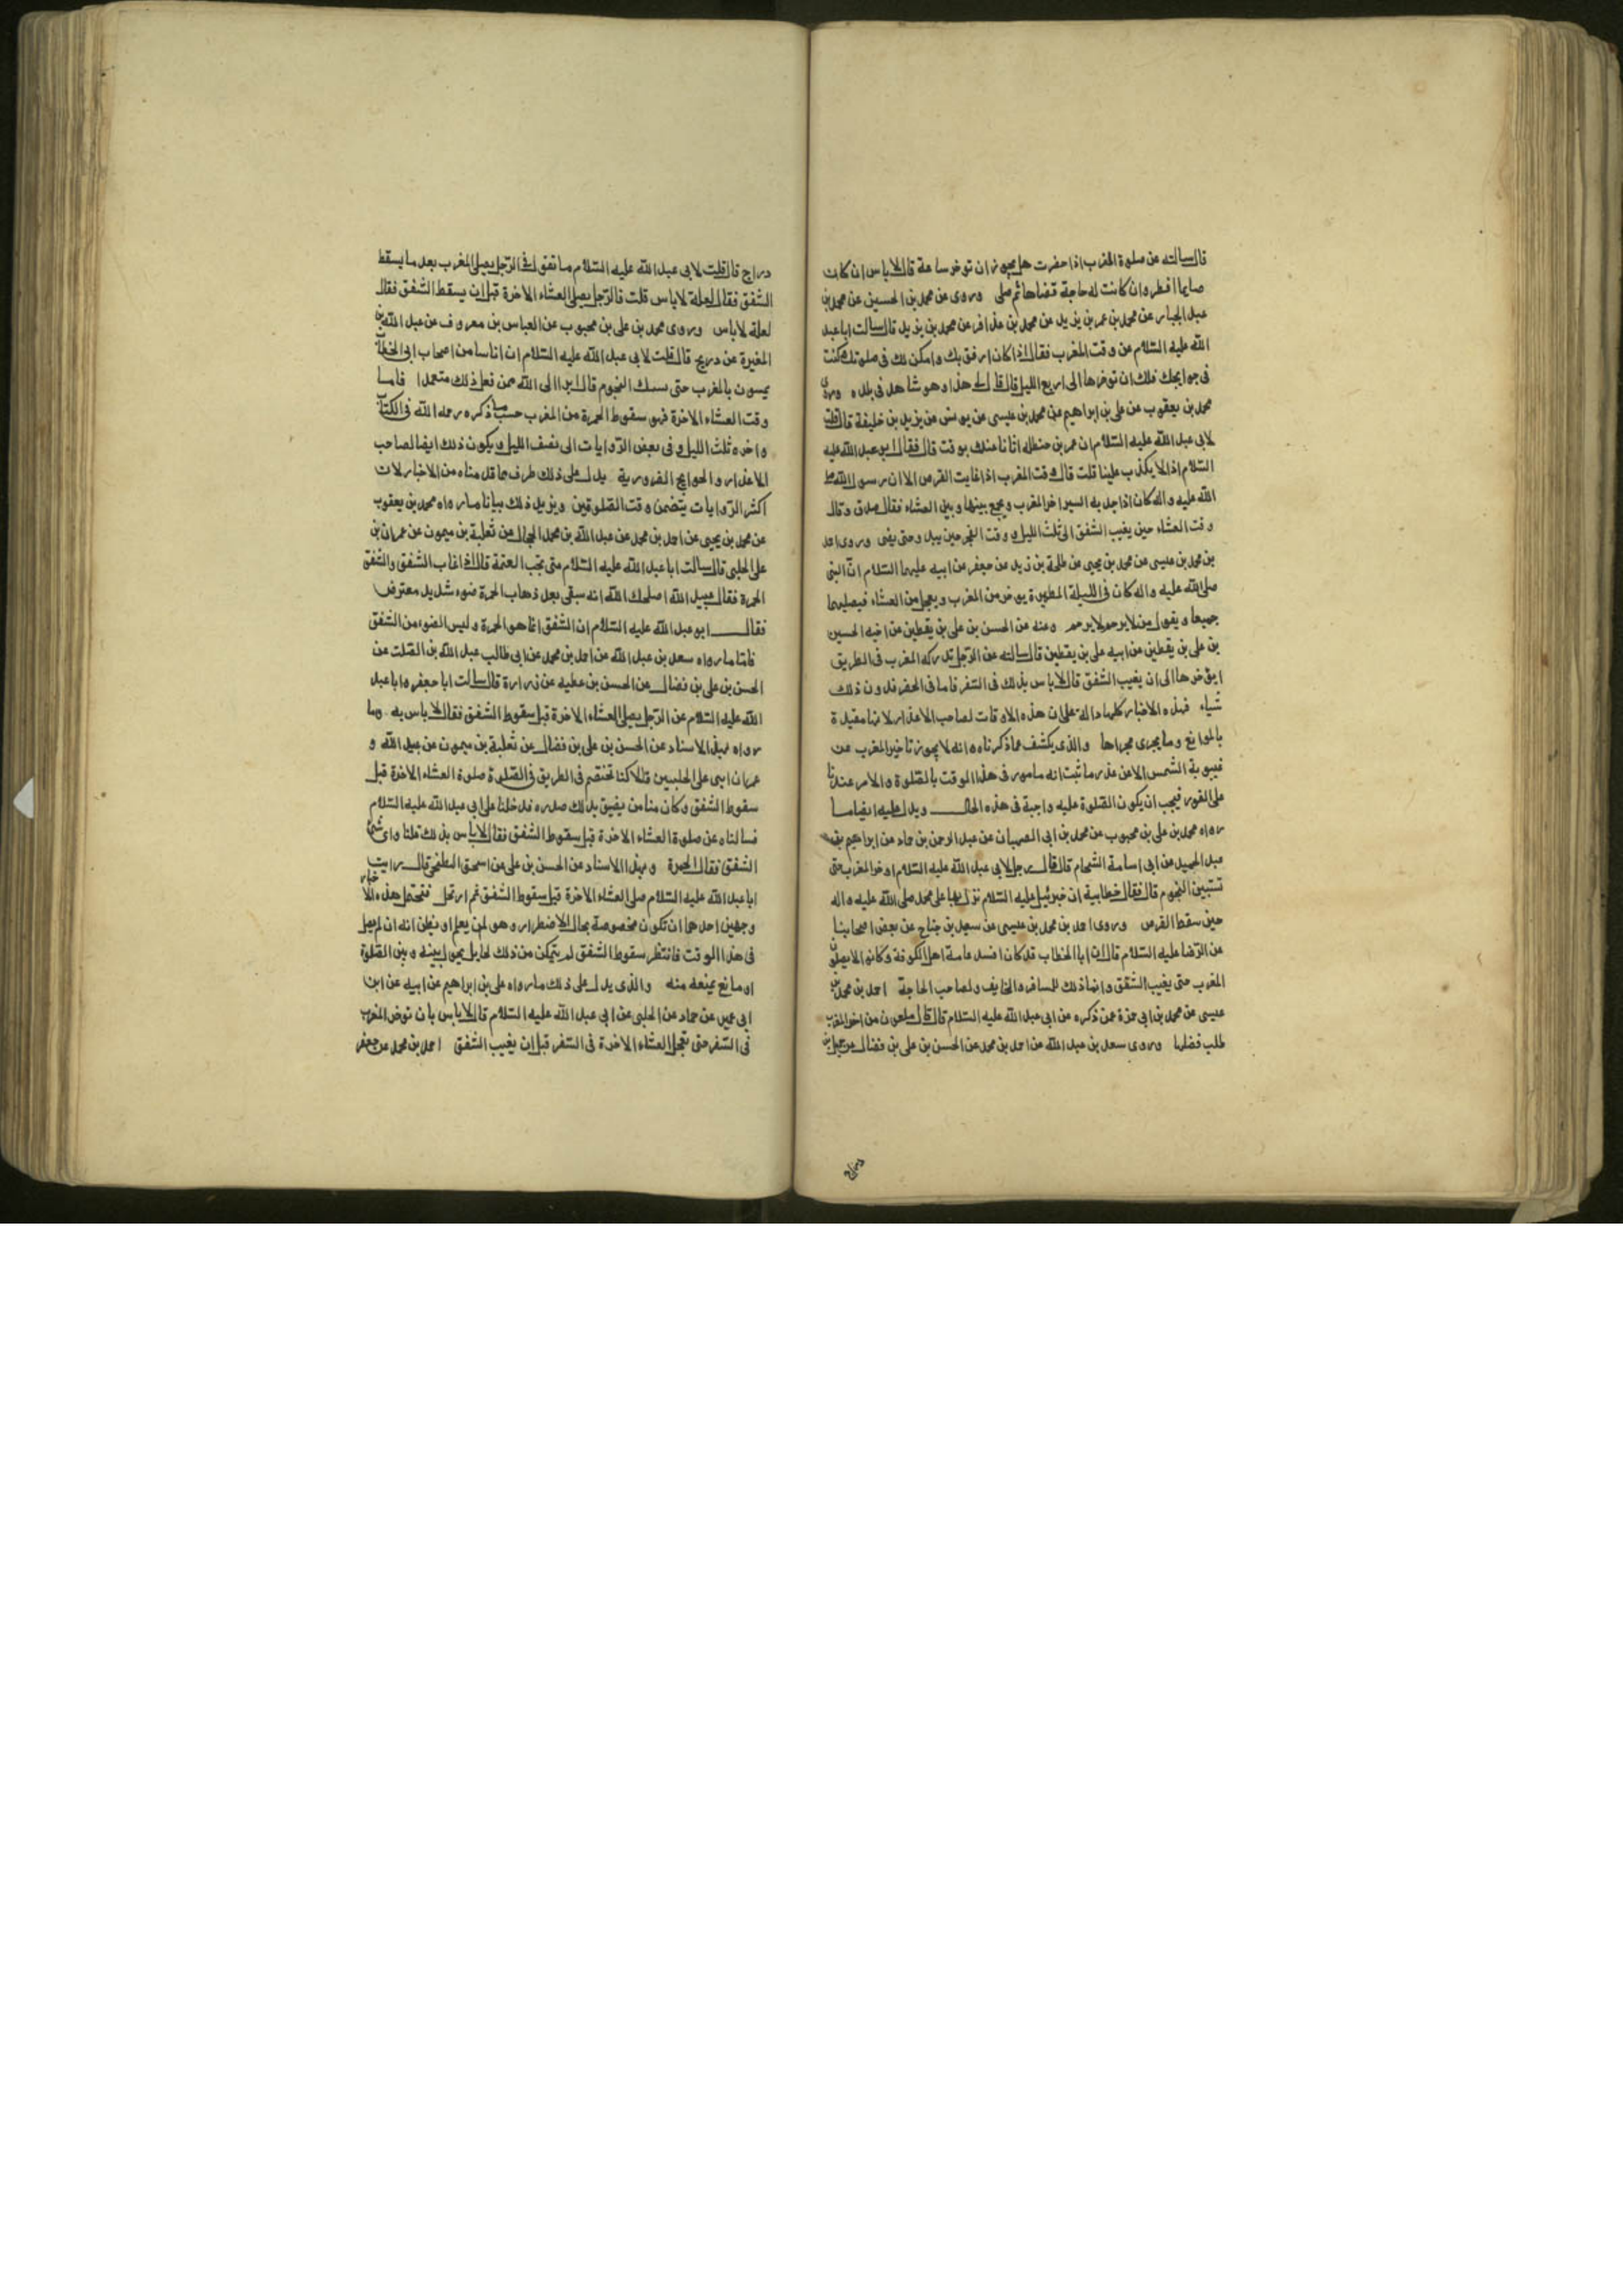 قال سالته عن صلوة المغرب اذا حضرت هل يجوز ان توخر ساعة قال لا باس ان كان
صايما افطر وان كانت له حاجة قضاها ثم صلى وروى عن محمد بن الحسين عن محمد بن
عبد الجبار عن محمد بن عمر بن يزيد عن محمد بن عذافر عن محمد بن يزيد قال سالت ابا عبد
الله عليه السلام عن وقت المغرب فقال اذا كان ارفق بك وامكن لك فى صلوتك وكنت
فى حوايجك فلك ان توخرها الى اربع الليل قال قال لى هذا وهو شاهد فى بلده وروى
محمد بن يعقوب عن على بن ابراهيم عن محمد بن عيسى عن يونس عن يزيد بن خليفة قال قلت
لابى عبد الله عليه السلام ان عمر بن حنظله اتانا عنك بوقت قال فقال ابو عبد الله عليه
السلام اذا لا يكذب علينا قلت قال وقت المغرب اذا غابت القرص الا ان رسول الله صلى
الله عليه واله كان اذا جد به السير اخر المغرب ويجمع بينها وبين العشاء فقال صدق وقال
وقت العشاء حين يغيب الشفق الى ثلث الليل ووقت الفجر حين يبدو حتى يضى وروى احمد
بن محمد بن عيسى عن محمد بن يحيى عن طلحة بن زيد عن جعفر عن ابيه عليهما السلام ان النبى
صلى الله عليه واله كان فى الليلة المطيرة يوخر من المغرب ويعجل من العشاء فيصليهما
جميعا ويقول من لا يرحم لا يرحم وعنه عن الحسن بن على بن يقطين عن اخيه الحسين
بن على بن يقطين عن ابيه على بن يقطين قال سالته عن الرجل تدركه المغرب فى الطريق
ايؤخرها الى ان يغيب الشفق قال لا باس بذلك فى السفر فاما فى الحضر فدون ذلك
شياء فهذه الاخبار كلها دالة على ان هذه الاوقات لصاحب الاعذار لانها مقيدة
بالموانع وما يجرى مجراها والذى يكشف عما ذكرناه انه لا يجوز تاخير المغرب عن
غيبوبة الشمس الا عن عذر ما ثبت انه مامور فى هذا الوقت بالصلوة والامر عندنا
على الفور فيجب ان يكون الصلوة عليه واجبة فى هذه الحال ويدل عليه ايضا ما
رواه محمد بن على بن محبوب عن محمد بن ابى الصهبان عن عبد الرحمن بن حماد عن ابراهيم بن
عبد الحميد عن ابى اسامة الشحام قال قال رجل لابى عبد الله عليه السلام اوخر المغرب حتى
تستبين النجوم قال فقال خطابية ان جبرئيل عليه السلام نزل بها على محمد صلى الله عليه واله
حين سقط القرص وروى احمد بن محمد بن عيسى عن سعيد بن جناح عن بعض اصحابنا
عن الرضا عليه السلام قال ان ابا الخطاب قد كان افسد عامة اهل الكوفة وكانوا لا يصلون
المغرب حتى يغيب الشفق وانما ذلك للمسافر والخايف ولصاحب الحاجة احمد بن محمد بن
عيسى عن محمد بن ابى حمزة عمن ذكره عن ابى عبد الله عليه السلام قال قال ملعون من اخر المغرب
طلب فضلها وروى سعد بن عبد الله عن احمد بن محمد عن الحسن بن على بن فضال عن جميل بن
دراج قال قلت لابى عبد الله عليه السلام ما تقول فى الرجل يصلى المغرب بعد ما يسقط
الشفق فقال لعلة لا باس قلت فالرجل يصلى العشاء الاخرة قبل ان يسقط الشفق فقال
لعلة لا باس وروى محمد بن على بن محبوب عن العباس بن معروف عن عبد الله بن
المغيرة عن ذريح قال قلت لابى عبد الله عليه السلام ان اناسا من اصحاب ابى الخطاب
يمسون بالمغرب حتى سبك النجوم قال ابرا الى الله ممن فعل ذلك متعمدا فاما
وقت العشاء الاخرة فهو سقوط الحمرة من المغرب حسب ما ذكره رحمه الله فى الكتاب
واخره ثلث الليل وفى بعض الروايات الى نصف الليل ويكون ذلك ايضا لصاحب
الاعذار والحوايج الضرورية يدل على ذلك طرف مما قدمناه من الاخبار لان
اكثر الروايات يتضمن وقت الصلوتين ويزيد ذلك بيانا ما رواه محمد بن يعقوب
عن محمد بن يحيى عن احمد بن محمد عن عبد الله بن محمد الحجال عن ثعلبة بن ميمون عن عمران بن
على الحلبى قال سالت ابا عبد الله عليه السلام متى تجب العتمة قال اذا غاب الشفق والشفق
الحمرة فقال عبيد الله اصلحك الله انه يبقى بعد ذهاب الحمرة ضوء شديد معترض
فقال ابو عبد الله عليه السلام ان الشفق انما هو الحمرة وليس الضوء من الشفق
فاما ما رواه سعد بن عبد الله عن احمد بن محمد عن ابى طالب عبد الله بن الصلت عن
الحسن بن على بن فضال عن الحسن بن عطيه عن زرارة قال سالت ابا جعفر وابا عبد
الله عليه السلام عن الرجل يصلى العشاء الاخرة قبل سقوط الشفق فقال لا باس به وما
رواه بهذا الاسناد عن الحسن بن على بن فضال عن ثعلبة بن ميمون عن عبيد الله و
عمران ابنى على الحلبيين قالا كنا نختصم فى الطريق فى الصلوة صلوة العشاء الاخرة قبل
سقوط الشفق وكان منا من يضيق بذلك صدره فدخلنا على ابى عبد الله عليه السلام
فسالناه عن صلوة العشاء الاخرة قبل سقوط الشفق فقال لا باس بذلك قلنا واى شئ
الشفق فقال الحمرة وبهذا الاسناد عن الحسن بن على عن اسحق البطيخى قال رايت
ابا عبد الله عليه السلام صلى العشاء الاخرة قبل سقوط الشفق ثم ارتحل فتحتمل هذه الاخبار
وجهين احدهما ان تكون مخصوصة بحال الاضطرار وهو لمن يعلم او يظن انه ان لم يصل
فى هذا الوقت فانتظر سقوط الشفق لم يتمكن من ذلك لحايل يحول بينه وبين الصلوة
او مانع يمنعه منه والذى يدل على ذلك ما رواه على بن ابراهيم عن ابيه عن ابن
ابى عمير عن حماد عن الحلبى عن ابى عبد الله عليه السلام قال لا باس بان توخر المغرب
فى السفر حتى تعجل العشاء الاخرة فى السفر قبل ان يغيب الشفق احمد بن محمد عن جعفر